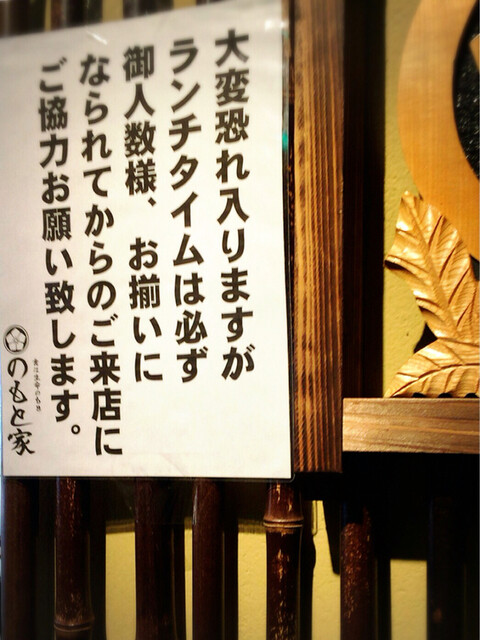 大変恐れ入りますが
ランチタイムは必ず
御人数様、お揃いに
なられてからのご来店に
ご協力お願い致します。
のもと家